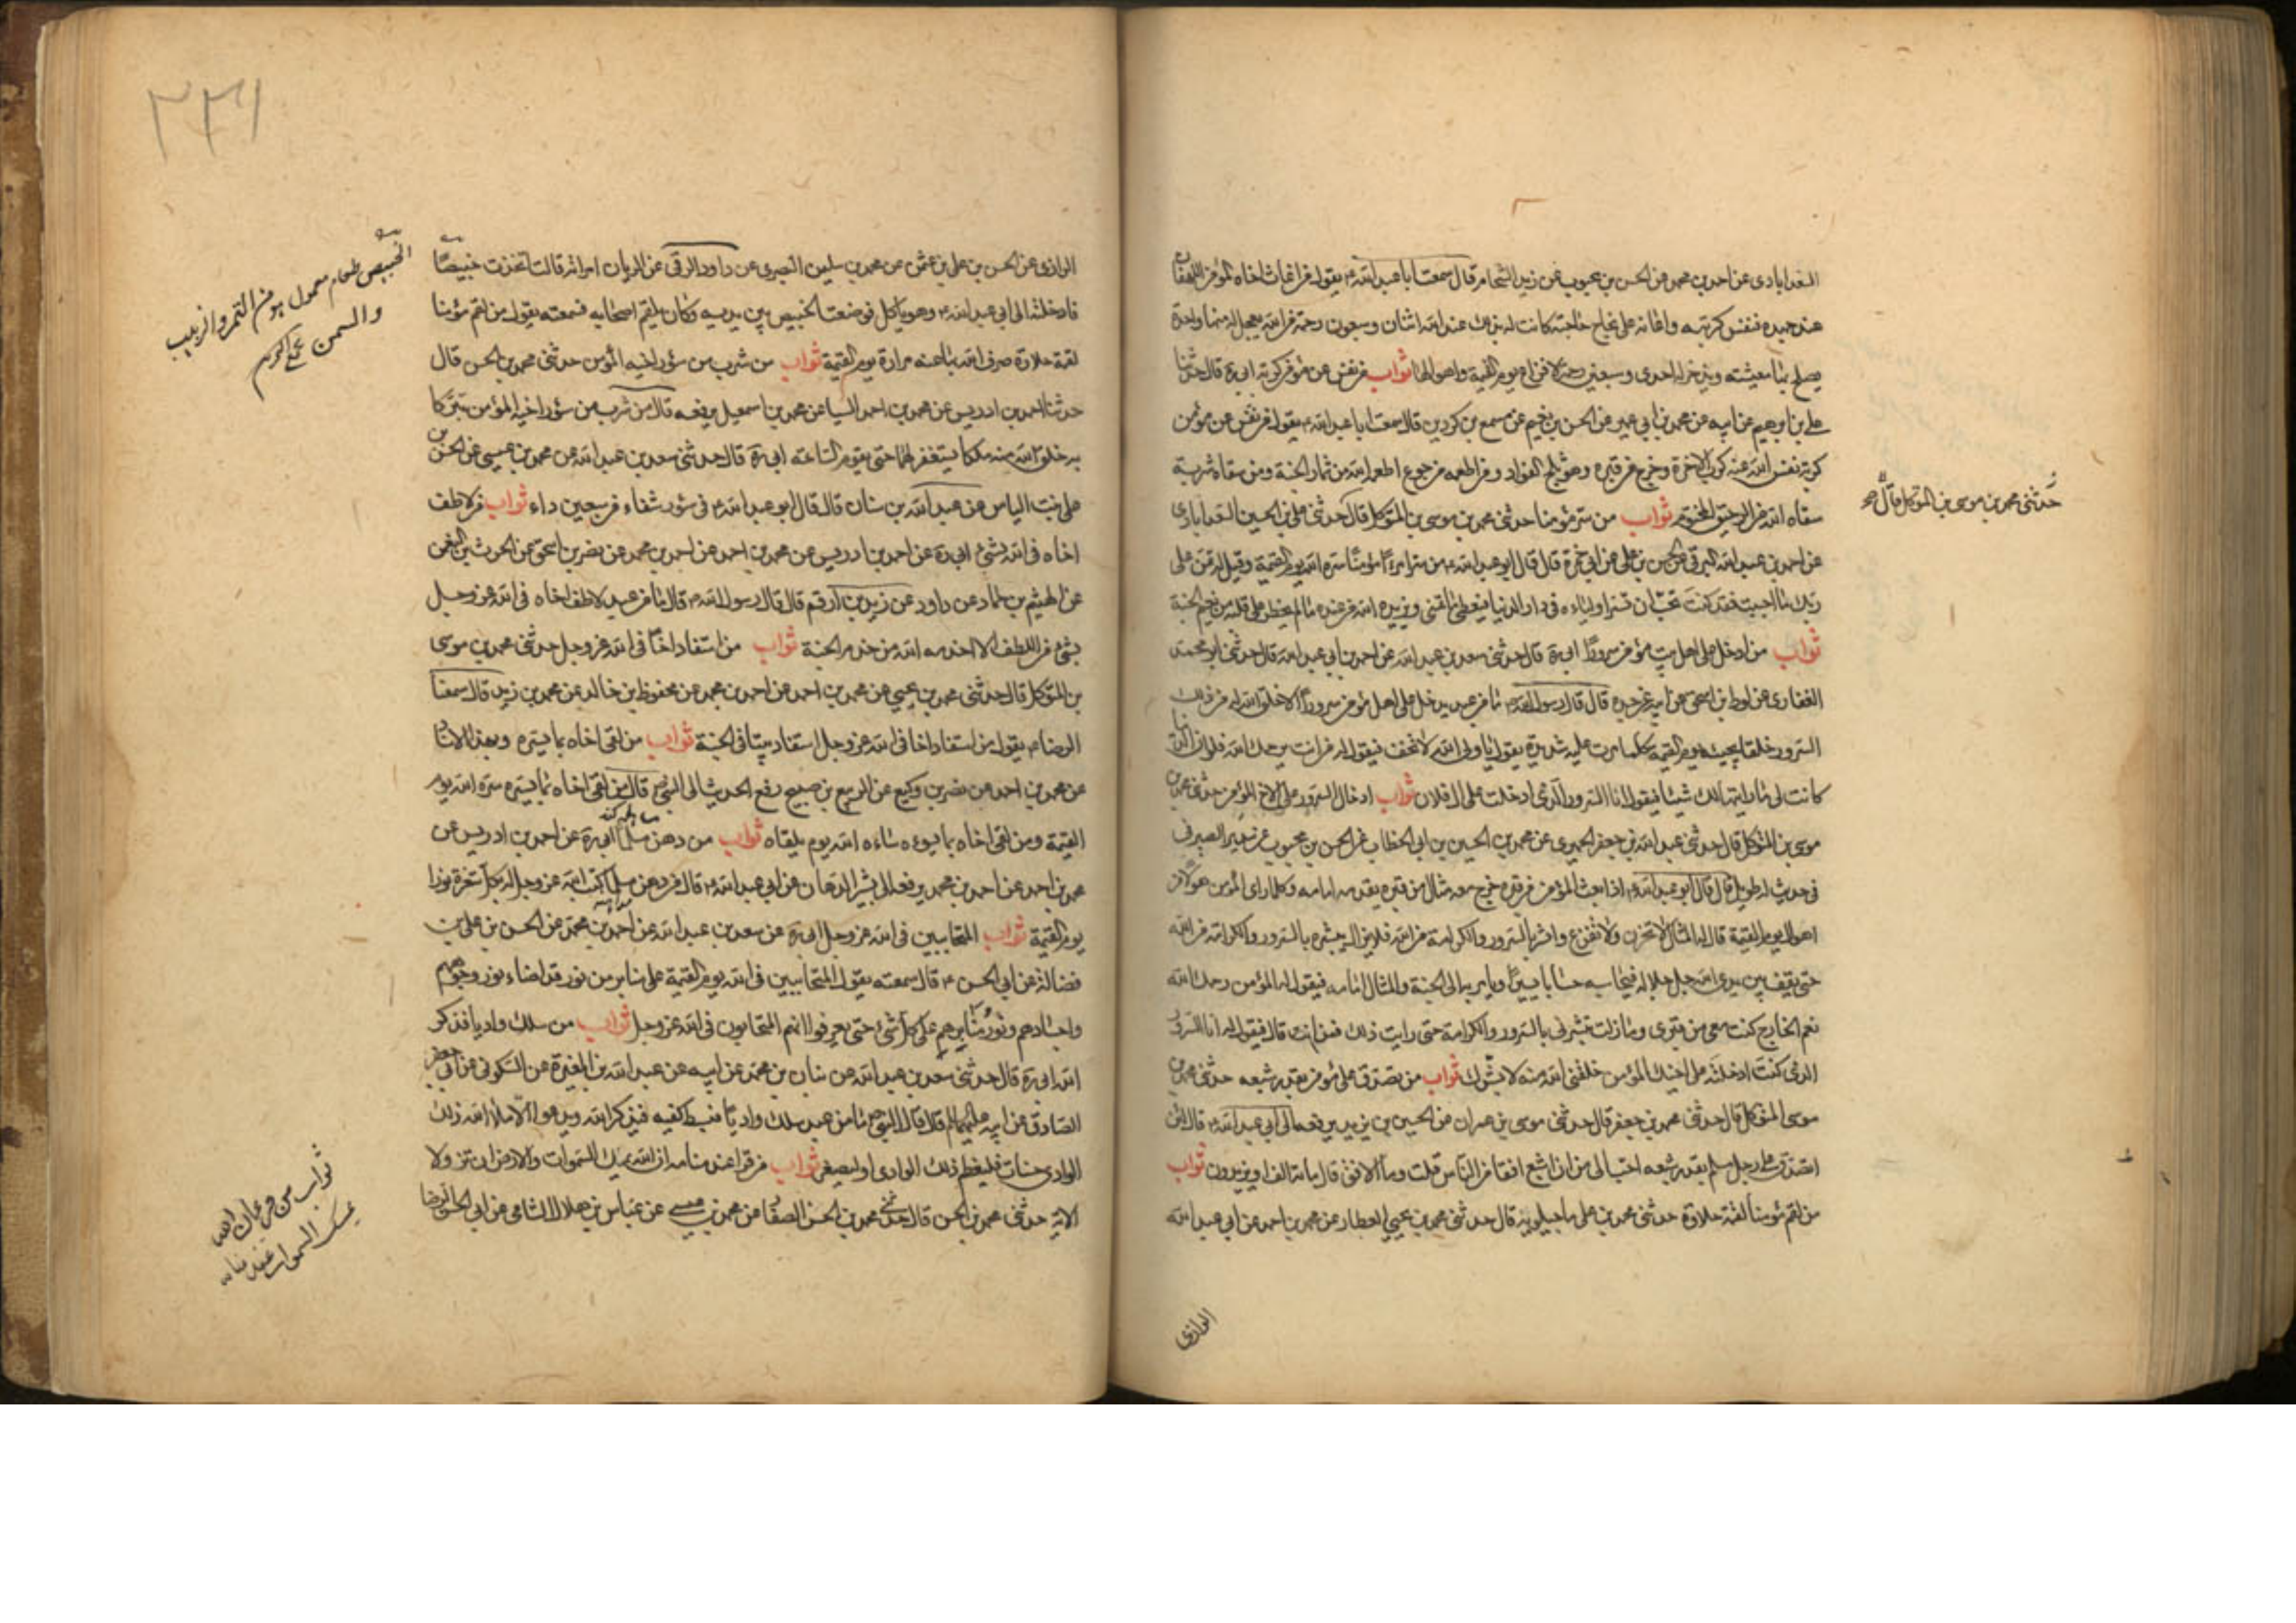 السعدابادى عن احمد بن محمد عن الحسن بن محبوب عن زيد الشحام قال سمعت ابا عبد الله ع يقول من اغاث اخاه المؤمن اللهفان
عند جهده فنفس كربته واعانه على نجاح حاجته كانت له بذلك عند الله اثنان وسبعون رحمة من الله يعجل له منها واحدة
يصلح بها معيشته ويدخر له احدى وسبعين رحمة لافزاع يوم القيمة واهوالها ثواب من نفس عن مؤمن كربة ابى ره قال حدثنا
على بن ابرهيم عن ابيه عن محمد بن ابى عمير عن الحسن بن نعيم عن مسمع بن كردين قال سمعت ابا عبد الله ع يقول من نفس عن مؤمن
كربة نفس الله عنه كرب الاخرة وخرج من قبره وهو ثلج الفؤاد ومن اطعمه من جوع اطعمه الله من ثمار الجنة ومن سقاه شربة
سقاه الله من الرحيق المختوم ثواب من سر مؤمنا حدثنى محمد بن موسى بن المتوكل قال حدثنى على بن الحسين السعدابادى
حدثنى محمد بن موسى بن المتوكل قال صح
عن احمد بن عبد الله البرقى عن الحسن بن على عن ابى حمزة قال قال ابو عبد الله ع من سر امرءا مؤمنا سره الله يوم القيمة وقيل له تمن على
ربك ما احببت فقد كنت تحب ان تسر اولياءه فى دار الدنيا فيعطى ما تمنى ويزيده الله من عنده ما لم يخطر على قلبه من نعيم الجنة
ثواب من ادخل على اهل بيت مؤمن سرورا ابى ره قال حدثنى سعد بن عبد الله عن احمد بن ابى عبد الله قال حدثنى ابو محمد
الغفارى عن لوط بن اسحق عن ابيه عن جده قال قال رسول الله ص ما من عبد يدخل على اهل مؤمن سرورا الا خلق الله له من ذلك
السرور خلقا يجيئه يوم القيمة كلما مرت عليه شديدة يقول يا ولى الله لا تخف فيقول له من انت يرحمك الله فلو ان الدنيا
كانت لى ما رايتها لك شيئا فيقول انا السرور الذى ادخلت على ال فلان ثواب ادخال السرور على الاخ المؤمن حدثنى محمد بن
موسى بن المتوكل قال حدثنى عبد الله بن جعفر الحميرى عن محمد بن الحسين بن ابى الخطاب عن الحسن بن محبوب عن سدير الصيرفى
فى حديث له طويل قال قال ابو عبد الله ع اذا بعث المؤمن من قبره خرج معه مثال من قبره يقدمه امامه وكلما راى المؤمن هولا من
اهوال يوم القيمة قال له المثال لا تحزن ولا تفزع وابشر بالسرور والكرامة من الله فلا يزال يبشره بالسرور والكرامة من الله
حتى يقف بين يدى الله جل جلاله فيحاسبه حسابا يسيرا ويامر به الى الجنة والمثال امامه فيقول له المؤمن رحمك الله
نعم الخارج كنت معى من قبرى وما زلت تبشرنى بالسرور والكرامة حتى رايت ذلك فمن انت قال فيقول له انا السرور
الذى كنت ادخلته على اخيك المؤمن خلقنى الله منه لابشرك ثواب من تصدق على مؤمن بقدر شبعه حدثنى محمد بن
موسى المتوكل قال حدثنى محمد بن جعفر قال حدثنى موسى بن عمران عن الحسين بن يزيد يرفعه الى ابى عبد الله ع قال لان
اتصدق على رجل مسلم بقدر شبعه احب الى من ان اشبع افقا من الناس قلت وما الافق قال مائة الف او يزيدون ثواب
من لقم مؤمنا لقمة حلاوة حدثنى محمد بن على ماجيلويه قال حدثنى محمد بن يحيى العطار عن محمد بن احمد عن ابى عبد الله
الرازى
٢٣١
الرازى عن الحسن بن على بن عثمن عن محمد بن سليمن البصرى عن داود الرقى عن الريان امراته قالت اتخذت خبيصا
الخبيص طعام معمول من التمر والزبيب
والسمن
فادخلته الى ابى عبد الله ع وهو ياكل فوضعت الخبيص بين يديه وكان يلقم اصحابه فسمعته يقول من لقم مؤمنا
لقمة حلاوة صرف الله بها عنه مرارة يوم القيمة ثواب من شرب من سؤر اخيه المؤمن حدثنى محمد بن الحسن قال
حدثنا احمد بن ادريس عن محمد بن احمد عن السيارى عن محمد بن اسمعيل يرفعه قال من شرب من سؤر اخيه المؤمن تبركا
به خلق الله منه ملكا يستغفر لهما حتى يقوم الساعة ابى ره قال حدثنى سعد بن عبد الله عن محمد بن عيسى عن الحسن بن
على بنت الياس عن عبد الله بن سنان قال قال ابو عبد الله ع فى سؤر شفاء من سبعين داء ثواب من لاطف
اخاه فى الله بشئ ابى ره عن احمد بن ادريس عن محمد بن احمد عن احمد بن محمد عن نصر بن اسحق عن الحرث بن النعمن
عن الهيثم بن حماد عن داود عن زيد بن ارقم قال قال رسول الله ص قال ما من عبد لاطف اخاه فى الله عز وجل
بشئ من اللطف الا اخدمه الله من خدم الجنة ثواب من استفاد اخا فى الله عز وجل حدثنى محمد بن موسى
بن المتوكل قال حدثنى محمد بن يحيى عن محمد بن احمد عن احمد بن محمد عن محفوظ بن خالد عن محمد بن زيد قال سمعت
الرضا ع يقول من استفاد اخا فى الله عز وجل استفاد بيتا فى الجنة ثواب من لقى اخاه بما يسره وبهذا الاسناد
عن محمد بن احمد عن نصر بن وكيع عن الربيع بن صبيح رفع الحديث الى النبى ص قال من لقى اخاه بما يسره سره الله يوم
القيمة ومن لقى اخاه بما يسوءه ساءه الله يوم يلقاه ثواب من دهن مسلما ابى ره عن احمد بن ادريس عن
محمد بن احمد عن احمد بن محمد يرفعه الى بشير الدهان عن ابى عبد الله ع قال من دهن مسلما كتب الله عز وجل له بكل شعرة نورا
يوم القيمة ثواب المتحابين فى الله عز وجل ابى ره عن سعد بن عبد الله عن احمد بن محمد عن الحسن بن على بن
فضالة عن ابى الحسن ع قال سمعته يقول المتحابين فى الله يوم القيمة على منابر من نور قد اضاء نور وجوههم
واجسادهم ونور منابرهم على كل شئ حتى يعرفوا انهم المتحابون فى الله عز وجل ثواب من سلك واديا فذكر
الله ابى ره قال حدثنى سعد بن عبد الله عن بنان بن محمد عن ابيه عن عبد الله بن المغيرة عن السكونى عن ابى جعفر
الصادق عن ابيه عليهما السلم قال قال النبى ص ما من عبد سلك واديا فيبسط كفيه فيذكر الله ويدعو الا ملا الله ذلك
الوادى حسنات فليعظم ذلك الوادى او ليصغر ثواب من قرا عند منامه ان الله يمسك السموات والارض ان تزولا
الاية حدثنى محمد بن الحسن قال حدثنى محمد بن الحسن الصفار عن محمد بن عيسى عن عباس بن هلال الشامى عن ابى الحسن الرضا
ثواب من قرء ان الله
يمسك السموات عند منامه